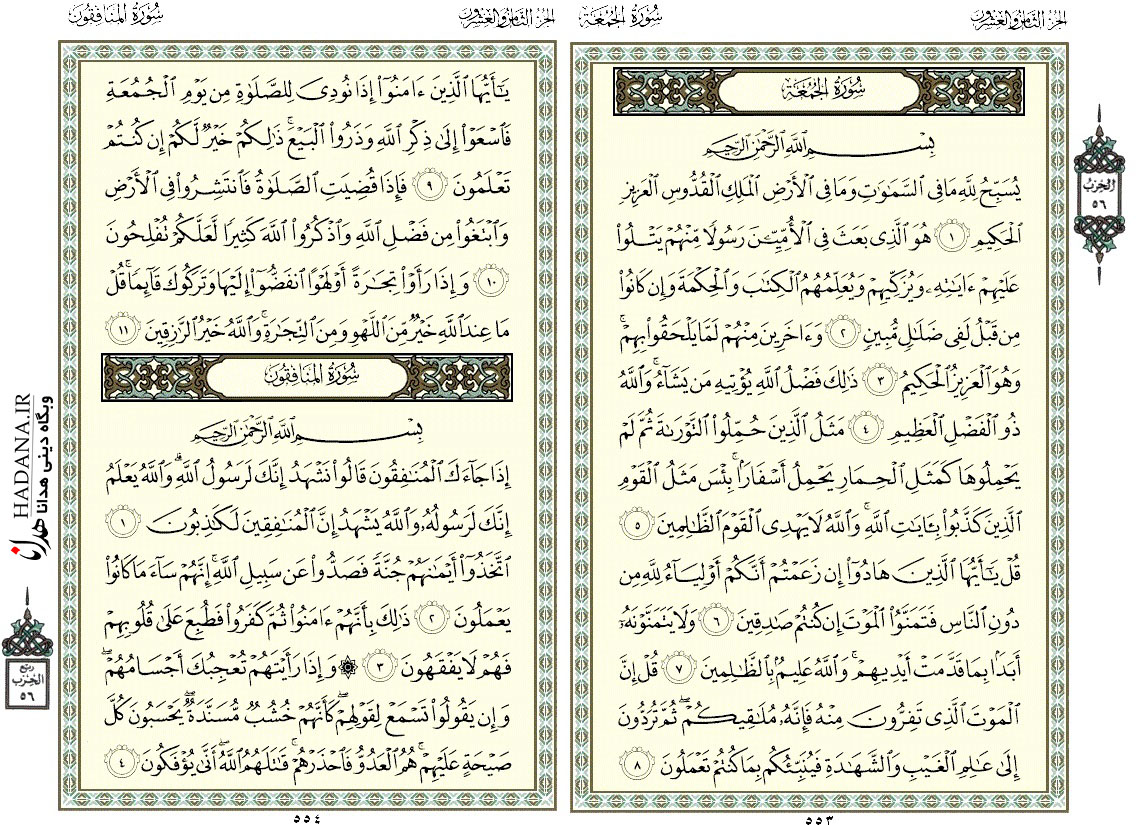 الجزء الثامن والعشرون
سُورَةُ الجُمُعَة
سُورَةُ الجُمُعَة
بِسْمِ ٱللَّهِ ٱلرَّحْمَٰنِ ٱلرَّحِيمِ
يُسَبِّحُ لِلَّهِ مَا فِى ٱلسَّمَٰوَٰتِ وَمَا فِى ٱلْأَرْضِ ٱلْمَلِكِ ٱلْقُدُّوسِ ٱلْعَزِيزِ
ٱلْحَكِيمِ ١ هُوَ ٱلَّذِى بَعَثَ فِى ٱلْأُمِّيِّـۧنَ رَسُولًا مِّنْهُمْ يَتْلُوا۟
عَلَيْهِمْ ءَايَٰتِهِۦ وَيُزَكِّيهِمْ وَيُعَلِّمُهُمُ ٱلْكِتَٰبَ وَٱلْحِكْمَةَ وَإِن كَانُوا۟
مِن قَبْلُ لَفِى ضَلَٰلٍ مُّبِينٍ ٢ وَءَاخَرِينَ مِنْهُمْ لَمَّا يَلْحَقُوا۟ بِهِمْ ۚ
وَهُوَ ٱلْعَزِيزُ ٱلْحَكِيمُ ٣ ذَٰلِكَ فَضْلُ ٱللَّهِ يُؤْتِيهِ مَن يَشَآءُ ۚ وَٱللَّهُ
ذُو ٱلْفَضْلِ ٱلْعَظِيمِ ٤ مَثَلُ ٱلَّذِينَ حُمِّلُوا۟ ٱلتَّوْرَىٰةَ ثُمَّ لَمْ
يَحْمِلُوهَا كَمَثَلِ ٱلْحِمَارِ يَحْمِلُ أَسْفَارًۢا ۚ بِئْسَ مَثَلُ ٱلْقَوْمِ
ٱلَّذِينَ كَذَّبُوا۟ بِـَٔايَٰتِ ٱللَّهِ ۚ وَٱللَّهُ لَا يَهْدِى ٱلْقَوْمَ ٱلظَّٰلِمِينَ ٥
قُلْ يَٰٓأَيُّهَا ٱلَّذِينَ هَادُوٓا۟ إِن زَعَمْتُمْ أَنَّكُمْ أَوْلِيَآءُ لِلَّهِ مِن
دُونِ ٱلنَّاسِ فَتَمَنَّوُا۟ ٱلْمَوْتَ إِن كُنتُمْ صَٰدِقِينَ ٦ وَلَا يَتَمَنَّوْنَهُۥٓ
أَبَدًۢا بِمَا قَدَّمَتْ أَيْدِيهِمْ ۚ وَٱللَّهُ عَلِيمٌۢ بِٱلظَّٰلِمِينَ ٧ قُلْ إِنَّ
ٱلْمَوْتَ ٱلَّذِى تَفِرُّونَ مِنْهُ فَإِنَّهُۥ مُلَٰقِيكُمْ ۖ ثُمَّ تُرَدُّونَ
إِلَىٰ عَٰلِمِ ٱلْغَيْبِ وَٱلشَّهَٰدَةِ فَيُنَبِّئُكُم بِمَا كُنتُمْ تَعْمَلُونَ ٨
٥٥٣
الحِزْب
٥٦
الجزء الثامن والعشرون
سُورَةُ المنَافِقُون
يَٰٓأَيُّهَا ٱلَّذِينَ ءَامَنُوٓا۟ إِذَا نُودِىَ لِلصَّلَوٰةِ مِن يَوْمِ ٱلْجُمُعَةِ
فَٱسْعَوْا۟ إِلَىٰ ذِكْرِ ٱللَّهِ وَذَرُوا۟ ٱلْبَيْعَ ۚ ذَٰلِكُمْ خَيْرٌ لَّكُمْ إِن كُنتُمْ
تَعْلَمُونَ ٩ فَإِذَا قُضِيَتِ ٱلصَّلَوٰةُ فَٱنتَشِرُوا۟ فِى ٱلْأَرْضِ
وَٱبْتَغُوا۟ مِن فَضْلِ ٱللَّهِ وَٱذْكُرُوا۟ ٱللَّهَ كَثِيرًا لَّعَلَّكُمْ تُفْلِحُونَ
١٠ وَإِذَا رَأَوْا۟ تِجَٰرَةً أَوْ لَهْوًا ٱنفَضُّوٓا۟ إِلَيْهَا وَتَرَكُوكَ قَآئِمًا ۚ قُلْ
مَا عِندَ ٱللَّهِ خَيْرٌ مِّنَ ٱللَّهْوِ وَمِنَ ٱلتِّجَٰرَةِ ۚ وَٱللَّهُ خَيْرُ ٱلرَّٰزِقِينَ ١١
سُورَةُ المنَافِقُون
بِسْمِ ٱللَّهِ ٱلرَّحْمَٰنِ ٱلرَّحِيمِ
إِذَا جَآءَكَ ٱلْمُنَٰفِقُونَ قَالُوا۟ نَشْهَدُ إِنَّكَ لَرَسُولُ ٱللَّهِ ۗ وَٱللَّهُ يَعْلَمُ
إِنَّكَ لَرَسُولُهُۥ وَٱللَّهُ يَشْهَدُ إِنَّ ٱلْمُنَٰفِقِينَ لَكَٰذِبُونَ ١
ٱتَّخَذُوٓا۟ أَيْمَٰنَهُمْ جُنَّةً فَصَدُّوا۟ عَن سَبِيلِ ٱللَّهِ ۚ إِنَّهُمْ سَآءَ مَا كَانُوا۟
يَعْمَلُونَ ٢ ذَٰلِكَ بِأَنَّهُمْ ءَامَنُوا۟ ثُمَّ كَفَرُوا۟ فَطُبِعَ عَلَىٰ قُلُوبِهِمْ
فَهُمْ لَا يَفْقَهُونَ ٣ ۞ وَإِذَا رَأَيْتَهُمْ تُعْجِبُكَ أَجْسَامُهُمْ ۖ
وَإِن يَقُولُوا۟ تَسْمَعْ لِقَوْلِهِمْ ۖ كَأَنَّهُمْ خُشُبٌ مُّسَنَّدَةٌ ۖ يَحْسَبُونَ كُلَّ
صَيْحَةٍ عَلَيْهِمْ ۚ هُمُ ٱلْعَدُوُّ فَٱحْذَرْهُمْ ۚ قَٰتَلَهُمُ ٱللَّهُ ۖ أَنَّىٰ يُؤْفَكُونَ ٤
٥٥٤
ربع
الحِزْب
٥٦
HADANA.IR
وبگاه دینی هدانا
هدانا